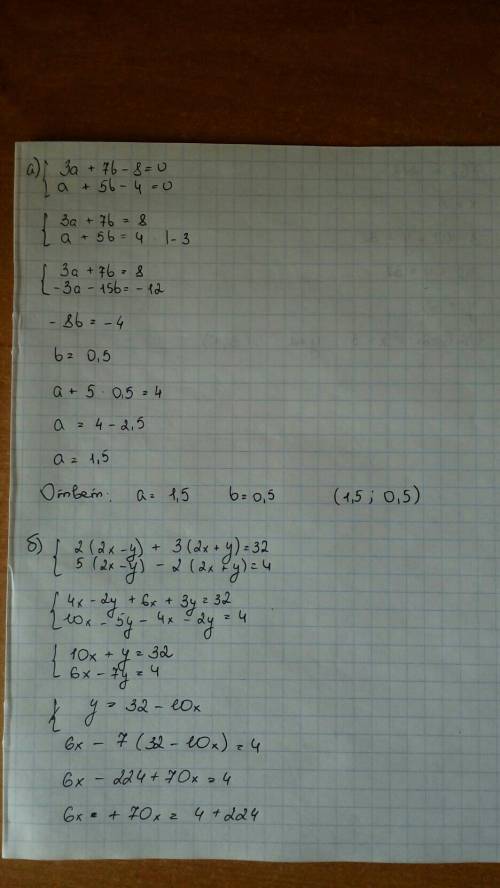 а) { 3a + 7b - 8 = 0
a + 5b - 4 = 0
{ 3a + 7b = 8
a + 5b = 4 | - 3
{ 3a + 7b = 8
-3a - 15b = -12
- 8b = -4
b = 0,5
a + 5 · 0,5 = 4
a = 4 - 2,5
a = 1,5
Ответ: a = 1,5 b = 0,5 (1,5 ; 0,5)
б) { 2(2x - y) + 3(2x + y) = 32
5(2x - y) - 2(2x + y) = 4
{ 4x - 2y + 6x + 3y = 32
10x - 5y - 4x - 2y = 4
{ 10x + y = 32
6x - 7y = 4
{ y = 32 - 10x
6x - 7(32 - 10x) = 4
6x - 224 + 70x = 4
6x = + 70x = 4 + 224